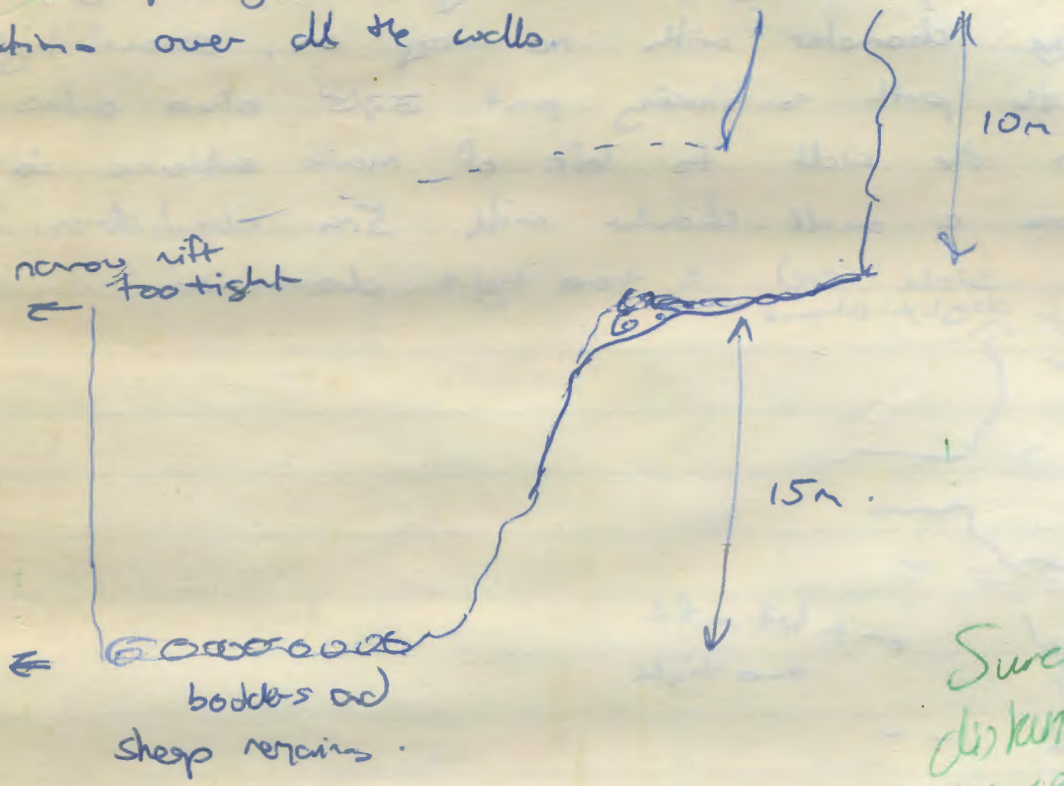 over all the walls
10m
narrow rift
too tight
15m.
boulders and
sheep remains.